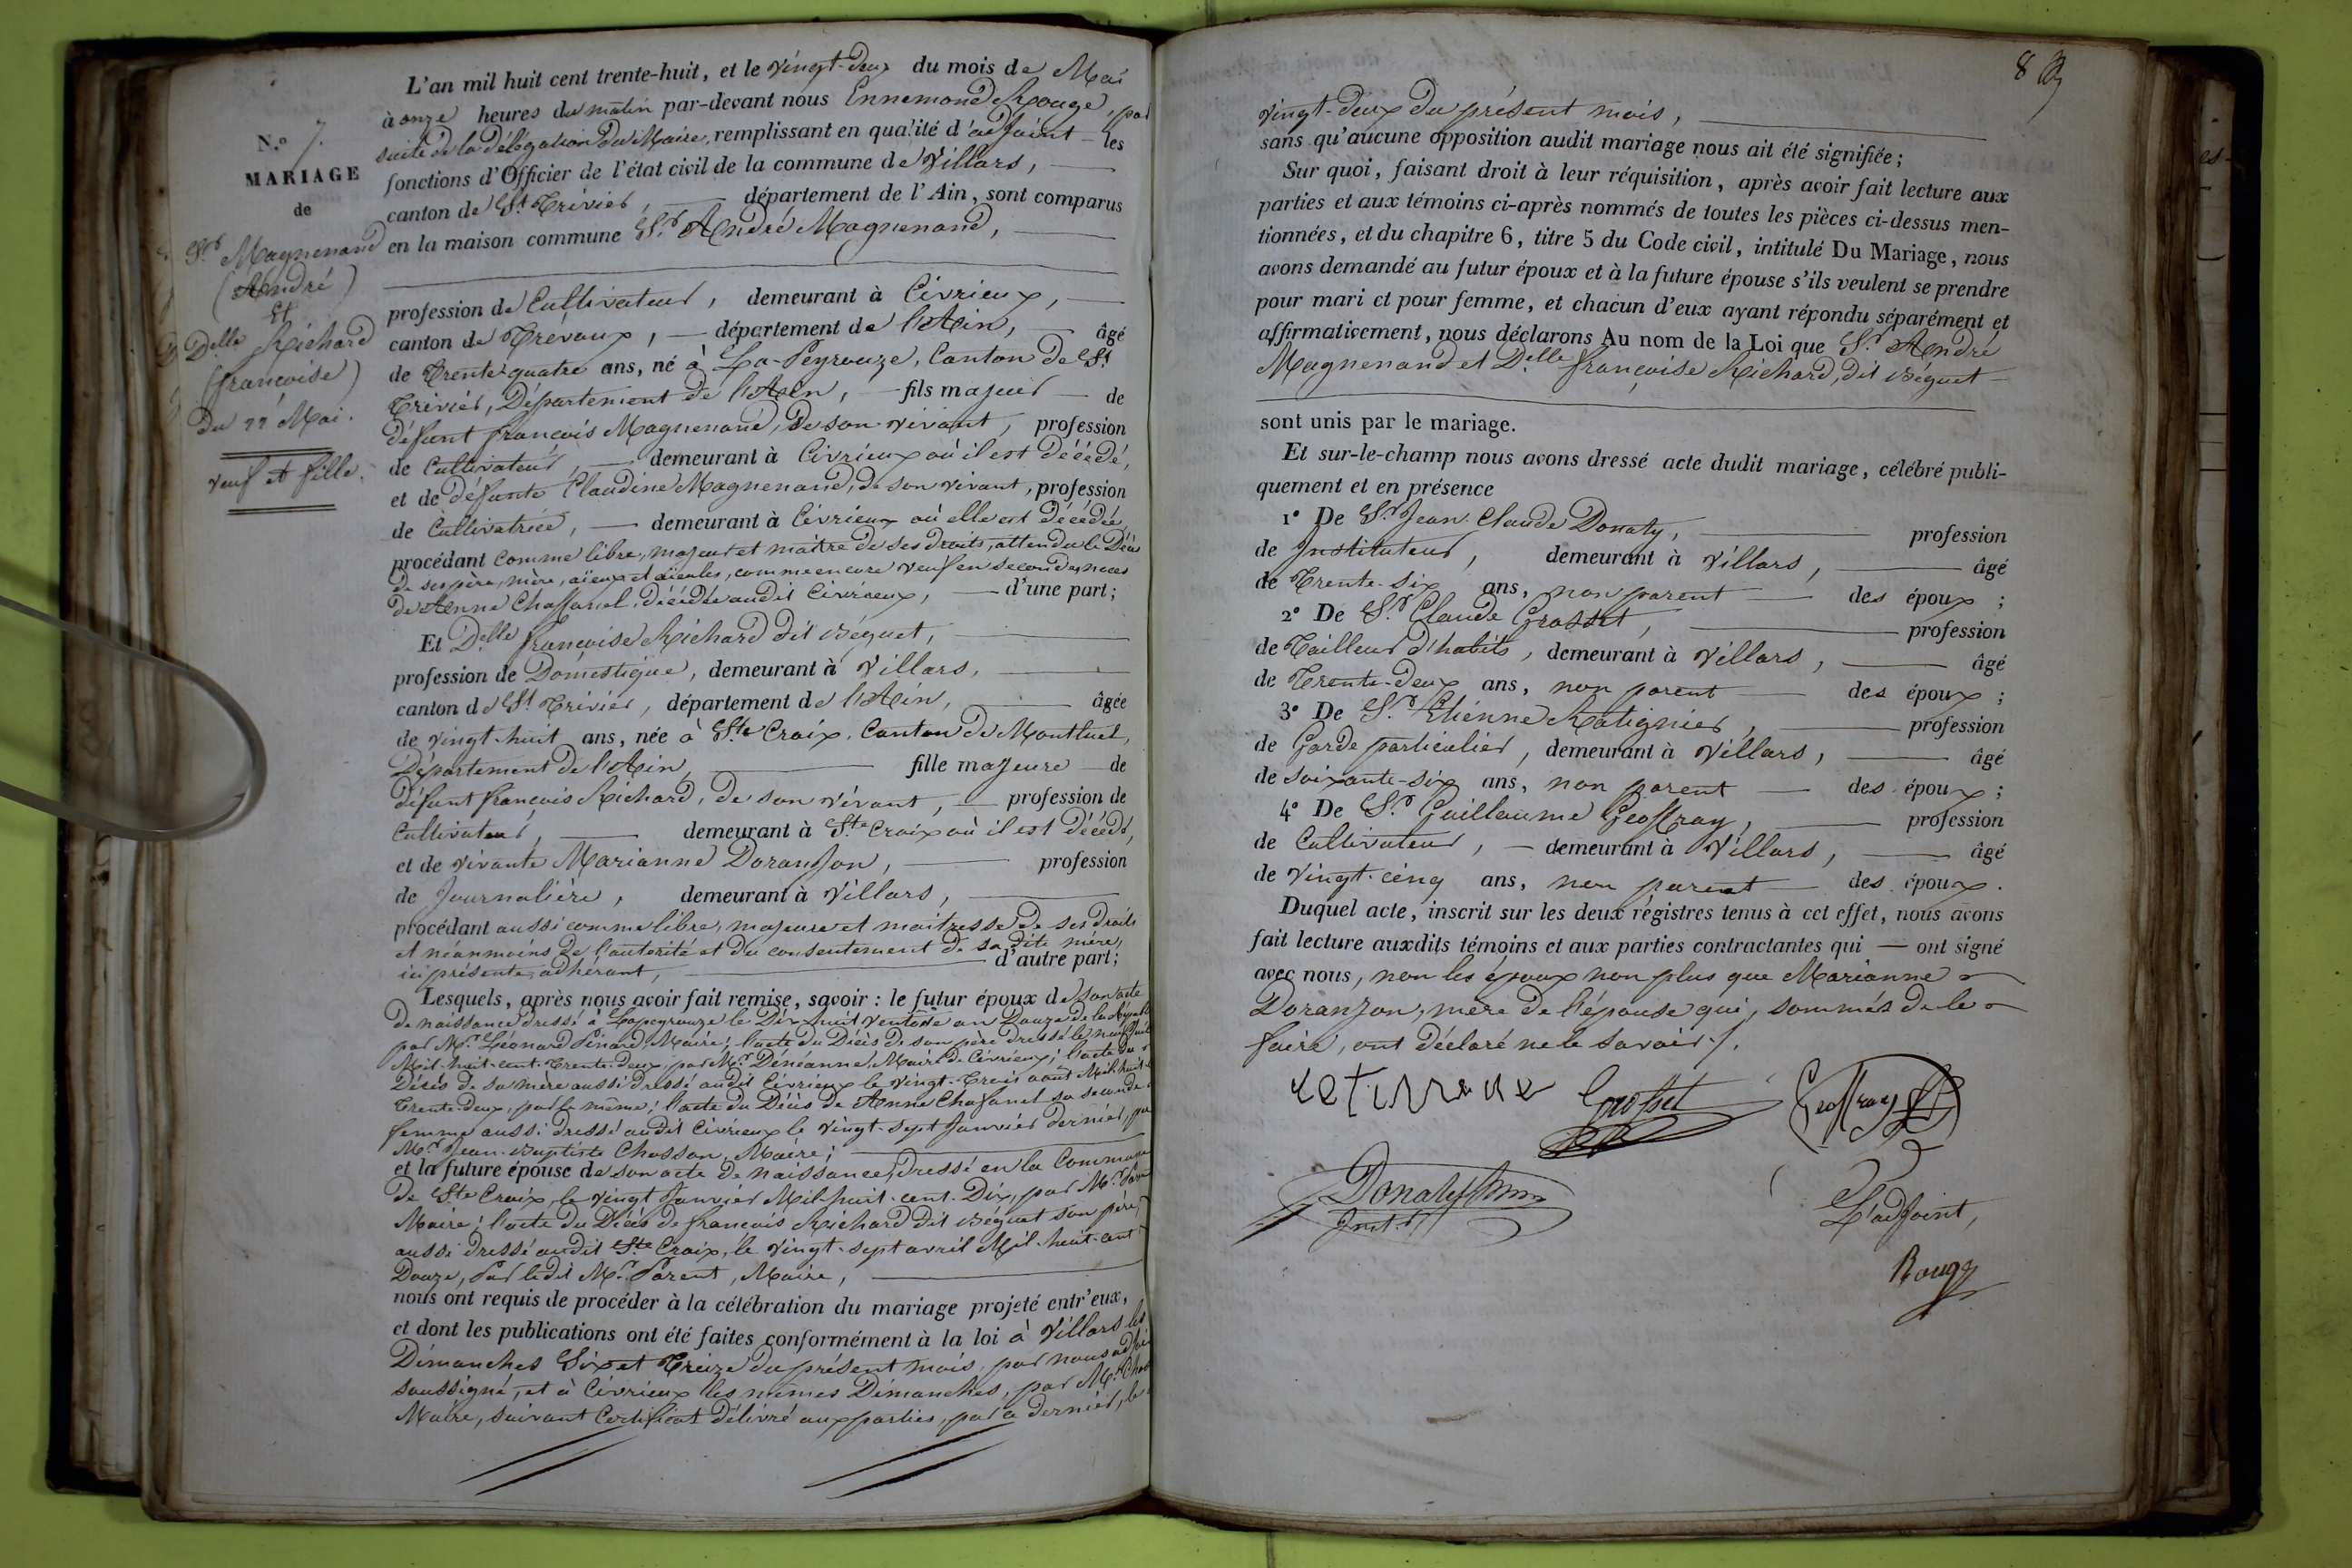 N.º 7.
MARIAGE
de
Sr. Magnenand
(André)
Et
Delle Richard
(françoise)
Du 22 Mai.
veuf et fille.
L'an mil huit cent trente-huit, et le vingt-deux du mois de Mai
à onze heures du matin par-devant nous Ennemond Rouge, par
suite de la délégation du Maire, remplissant en qualité d'adjoint les
fonctions d'Officier de l'état civil de la commune de Villars,
canton de St. Trivier, département de l'Ain, sont comparus
en la maison commune Sr. André Magnenand,
profession de Cultivateur, demeurant à Civrieux,
canton de Trevoux, département de l'Ain, âgé
de Trente quatre ans, né à La-Peyrouze, Canton de St.
Trivier, Département de l'Ain, fils majeur de
défunt françois Magnenand, de son vivant, profession
de Cultivateur, demeurant à Civrieux où il est décédé,
et de défunte Claudine Magnenand, de son vivant, profession
de Cultivatrice, demeurant à Civrieux où elle est décédée,
procédant comme libre, majeur et maître de ses droits, attendu le Décès
de ses père, mère, aïeux et aïeules, comme encore veuf en secondes noces
de Anne Chaffanel, décédée audit Civrieux, d'une part;
Et Delle françoise Richard dit Béguet,
profession de Domestique, demeurant à Villars,
canton de St. Trivier, département de l'Ain, âgée
de vingt-huit ans, née à Ste Croix, Canton de Montluel,
Département de l'Ain, fille majeure de
défunt françois Richard, de son vivant, profession de
Cultivateur, demeurant à Ste Croix où il est décédé,
et de vivante Marianne Doranjon, profession
de Journalière, demeurant à Villars,
procédant aussi comme libre, majeure et maitresse de ses droits
et néanmoins de l'autorité et du consentement de sa dite mère,
ici présente, adhérant, d'autre part;
Lesquels, après nous avoir fait remise, savoir : le futur époux de son acte
de naissance dressé à Lapeyrouze le Dix huit ventôse an Douze de la
par Mr. Léonard Penard, Maire; l'acte du Décès de son père dressé le neuf
Mil-huit-cent-Trente-deux, par Mr. Dénéanne, Maire de Civrieux; l'acte du
Décès de sa mère aussi dressé audit Civrieux le vingt-Trois août Mil-huit-c
Trente-deux, par le même; l'acte du Décès de Anne Chafanel sa seconde
femme aussi dressé audit Civrieux le vingt-sept Janvier dernier, par
Mr. Jean-Baptiste Chasson, Maire;
et la future épouse de son acte de naissance, dressé en la Commune
de Ste Croix, le vingt Janvier Mil-huit-cent-Dix, par Mr.
Maire; l'acte du Décès de françois Richard dit Béguet son père,
aussi dressé audit Ste Croix, le vingt-sept avril Mil-huit-cent
Douze, Par ledit Mr. Parent, Maire,
nous ont requis de procéder à la célébration du mariage projeté entr'eux,
et dont les publications ont été faites conformément à la loi à Villars les
Dimanches Six et Treize du présent mois, par nous adjoint
soussigné, et à Civrieux les mêmes Dimanches, par Mr.
Maire, suivant Certificat délivré aux parties, par ce dernier, le
8
vingt-deux du présent mois,
sans qu'aucune opposition audit mariage nous ait été signifiée;
Sur quoi, faisant droit à leur réquisition, après avoir fait lecture aux
parties et aux témoins ci-après nommés de toutes les pièces ci-dessus men-
tionnées, et du chapitre 6, titre 5 du Code civil, intitulé Du Mariage, nous
avons demandé au futur époux et à la future épouse s'ils veulent se prendre
pour mari et pour femme, et chacun d'eux ayant répondu séparément et
affirmativement, nous déclarons Au nom de la Loi que Sr. André
Magnenand et Delle françoise Richard, dit Béguet
sont unis par le mariage.
Et sur-le-champ nous avons dressé acte dudit mariage, célébré publi-
quement et en présence
1º De Sr. Jean-Claude Donaty, profession
de Instituteur, demeurant à Villars, âgé
de Trente-six ans, non parent des époux;
2º De Sr. Claude Grosset, profession
de Tailleur d'habits, demeurant à Villars, âgé
de Trente-deux ans, non parent des époux;
3º De Sr. Etienne Ratignier, profession
de Garde particulier, demeurant à Villars, âgé
de soixante-six ans, non parent des époux;
4º De Sr. Guillaume Geoffray, profession
de Cultivateur, demeurant à Villars, âgé
de Vingt-cinq ans, non parent des époux.
Duquel acte, inscrit sur les deux régistres tenus à cet effet, nous avons
fait lecture auxdits témoins et aux parties contractantes qui ont signé
avec nous, non les époux non plus que Marianne
Doranjon, mère de l'épouse qui, sommés de le
faire, ont déclaré ne le savoir./.
Grosset
Geoffray
Donaty
Inst.r
L'adjoint,
Rouge